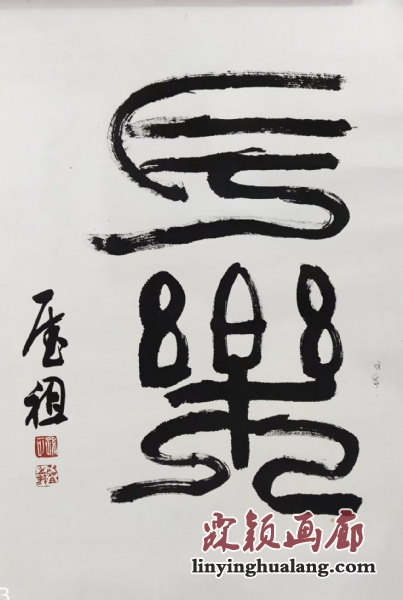 長樂
祖
霖颖画廊
linyinghualang.com